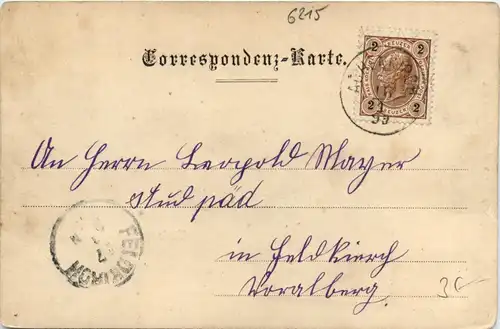 6215
Correspondenz-Karte.
2 2
2 2
99
An Herrn Leopold Mayer
stud päd
in Feldkirch
Voralberg
FELDKIRCH
3€